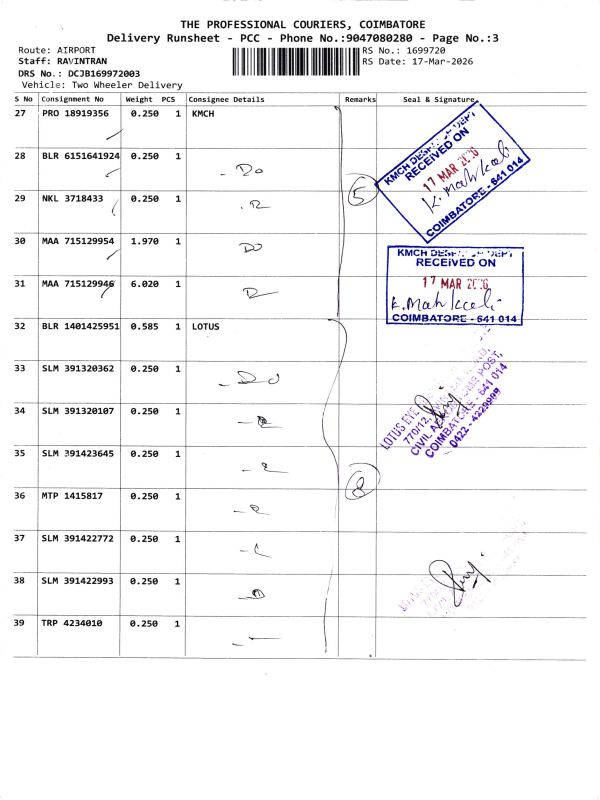 THE PROFESSIONAL COURIERS, COIMBATORE
Delivery Runsheet - PCC - Phone No.:9047080280 - Page No.:3
Route: AIRPORT RS No.: 1699720
Staff: RAVINTRAN RS Date: 17-Mar-2026
DRS No.: DCJB169972003
Vehicle: Two Wheeler Delivery
S No Consignment No Weight PCS Consignee Details Remarks Seal & Signature
27 PRO 18919356 0.250 1 KMCH
28 BLR 6151641924 0.250 1 - Do
29 NKL 3718433 0.250 1
30 MAA 715129954 1.970 1 DO
31 MAA 715129946 6.020 1
5
KMCH DEPT
RECEIVED ON
17 MAR 2026
K. Mahkali
COIMBATORE - 641 014
KMCH DEPT
RECEIVED ON
17 MAR
K. Mahkali
COIMBATORE - 641 014
32 BLR 1401425951 0.585 1 LOTUS
33 SLM 391320362 0.250 1 - Do
34 SLM 391320107 0.250 1
35 SLM 391423645 0.250 1
36 MTP 1415817 0.250 1
37 SLM 391422772 0.250 1
38 SLM 391422993 0.250 1
39 TRP 4234010 0.250 1
8
LOTUS EYE
770/12,
CIVIL POST,
COIMBATORE - 641 014
0422 - 4229999